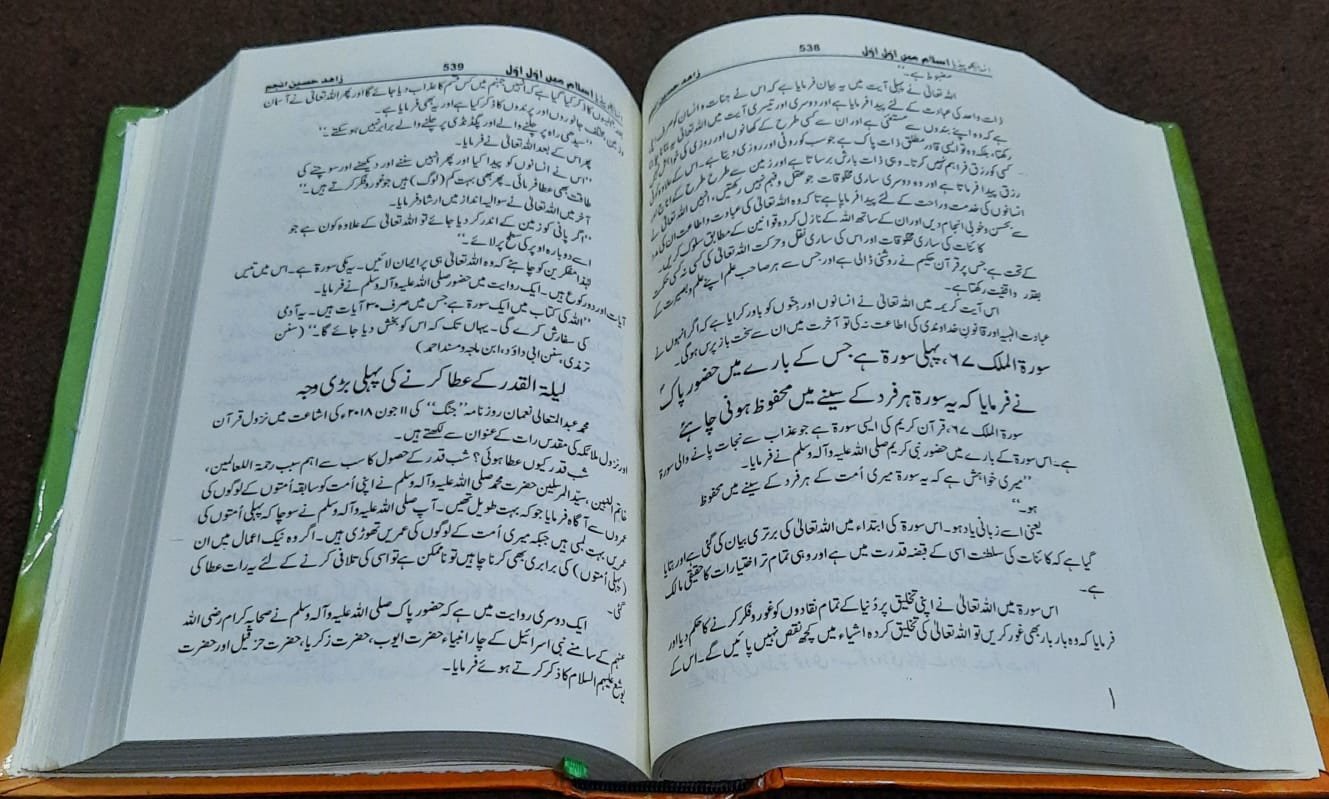 انسائیکلوپیڈیا اسلام میں اوّل اوّل 538 زاہد حسین انجم
مضبوط ہے۔"
اللہ تعالیٰ نے پہلی آیت میں یہ بیان فرمایا ہے کہ اس نے جنات و انسان کو صرف
ذات واحد کی عبادت کے لئے پیدا فرمایا ہے اور دوسری اور تیسری آیت میں اللہ تعالیٰ
ہے کہ وہ اپنے بندوں سے مستغنی ہے اور ان سے کسی طرح کے کھانوں اور روزی کی خواہش
رکھتا، بلکہ وہ تو ایسی قادر مطلق ذات پاک ہے جو سب کو روٹی اور روزی دیتا ہے۔ اس کے علاوہ
کسی کو رزق فراہم نہیں کرتا۔ وہی ذات بارش برساتا ہے اور زمین سے طرح طرح کے
رزق پیدا فرماتا ہے اور وہ دوسری ساری مخلوقات جو عقل و فہم نہیں رکھتیں، انہیں اللہ تعالیٰ نے
انسانوں کی خدمت و راحت کے لئے پیدا فرمایا ہے تاکہ وہ اللہ تعالیٰ کی عبادت و اطاعت ان کی
سے بحسن و خوبی انجام دیں اور ان کے ساتھ اللہ کے نازل کردہ قوانین کے مطابق سلوک کریں۔
کائنات کی ساری مخلوقات اور اس کی ساری نقل و حرکت اللہ تعالیٰ کی کسی نہ کسی حکمت
کے تحت ہے جس پر قرآن حکیم نے روشنی ڈالی ہے اور جس سے ہر صاحب علم اپنے علم و بصیرت کے
بقدر واقفیت رکھتا ہے۔
اس آیت کریمہ میں اللہ تعالیٰ نے انسانوں اور جنّوں کو باور کرایا ہے کہ اگر انہوں نے
عبادت الٰہیہ اور قانون خداوندی کی اطاعت نہ کی تو آخرت میں ان سے سخت باز پرس ہوگی۔
سورۃ الملک ۶۷، پہلی سورۃ ہے جس کے بارے میں حضور پاکؐ
نے فرمایا کہ یہ سورۃ ہر فرد کے سینے میں محفوظ ہونی چاہئے
سورۃ الملک ۶۷، قرآن کریم کی ایسی سورۃ ہے جو عذاب سے نجات پانے والی سورۃ
ہے۔ اس سورۃ کے بارے میں حضور نبی کریم صلی اللہ علیہ وآلہ وسلم نے فرمایا۔
"میری خواہش ہے کہ یہ سورۃ میری اُمت کے ہر فرد کے سینے میں محفوظ
ہو۔"
یعنی اسے زبانی یاد ہو۔ اس سورۃ کی ابتداء میں اللہ تعالیٰ کی برتری بیان کی گئی ہے اور بتایا
گیا ہے کہ کائنات کی سلطنت اسی کے قبضہ قدرت میں ہے اور وہی تمام تر اختیارات کا حقیقی مالک
ہے۔
اس سورۃ میں اللہ تعالیٰ نے اپنی تخلیق پر دُنیا کے تمام نقادوں کو غور و فکر کرنے کا حکم دیا اور
فرمایا کہ وہ بار بار بھی غور کریں تو اللہ تعالیٰ کی تخلیق کردہ اشیاء میں کچھ نقص نہیں پائیں گے۔ اس کے
انسائیکلوپیڈیا اسلام میں اوّل اوّل 539 زاہد حسین انجم
بعد جہنمیوں کا ذکر کیا گیا ہے کہ انہیں جہنم میں کس قسم کا عذاب دیا جائے گا اور پھر اللہ تعالیٰ نے آسمان
و زمین، مختلف جانوروں اور پرندوں کا ذکر کیا ہے اور یہ بھی فرمایا ہے۔
"سیدھی راہ پر چلنے والے اور پگڈنڈی پر چلنے والے برابر نہیں ہو سکتے۔"
پھر اس کے بعد اللہ تعالیٰ نے فرمایا۔
"اس نے انسانوں کو پیدا کیا اور پھر انہیں سننے اور دیکھنے اور سوچنے کی
طاقت بھی عطا فرمائی۔ پھر بھی بہت کم (لوگ) ہیں جو غور و فکر کرتے ہیں۔"
آخر میں اللہ تعالیٰ نے سوالیہ انداز میں ارشاد فرمایا۔
"اگر پانی کو زمین کے اندر کر دیا جائے تو اللہ تعالیٰ کے علاوہ کون ہے جو
اسے دوبارہ اوپر کی سطح پر لائے۔"
لہٰذا مفکرین کو چاہئے کہ وہ اللہ تعالیٰ ہی پر ایمان لائیں۔ یہ مکی سورۃ ہے۔ اس میں تیس
آیات اور دو رکوع ہیں۔ ایک روایت میں حضور صلی اللہ علیہ وآلہ وسلم نے فرمایا۔
"اللہ کی کتاب میں ایک سورۃ ہے جس میں صرف ۳۰ آیات ہیں۔ یہ آدمی
کی سفارش کرے گی۔ یہاں تک کہ اس کو بخش دیا جائے گا۔" (سنن
ترمذی، سنن ابی داؤد، ابن ماجہ و مسند احمد)
لیلۃ القدر کے عطا کرنے کی پہلی بڑی وجہ
محمد عبدالمتعالی نعمان روزنامہ "جنگ" کی ۱۱ جون ۲۰۱۸ء کی اشاعت میں نزول قرآن
اور نزول ملائکہ کی مقدس رات کے عنوان سے لکھتے ہیں۔
شب قدر کیوں عطا ہوئی؟ شب قدر کے حصول کا سب سے اہم سبب رحمۃ للعالمین،
خاتم النبیین، سیّد المرسلین حضرت محمد صلی اللہ علیہ وآلہ وسلم نے اپنی اُمت کو سابقہ اُمتوں کے لوگوں کی
عمروں سے آگاہ فرمایا جو کہ بہت طویل تھیں۔ آپ صلی اللہ علیہ وآلہ وسلم نے سوچا کہ پہلی اُمتوں کی
عمریں بہت لمبی ہیں جبکہ میری اُمت کے لوگوں کی عمریں تھوڑی ہیں۔ اگر وہ نیک اعمال میں ان
(پہلی اُمتوں) کی برابری بھی کرنا چاہیں تو ناممکن ہے تو اسی کی تلافی کرنے کے لئے یہ رات عطا کی
گئی۔
ایک دوسری روایت میں ہے کہ حضور پاک صلی اللہ علیہ وآلہ وسلم نے صحابہ کرام رضی اللہ
عنہم کے سامنے بنی اسرائیل کے چار انبیاء حضرت ایوب، حضرت زکریا، حضرت حزقیل اور حضرت
یوشع علیہم السلام کا ذکر کرتے ہوئے فرمایا۔